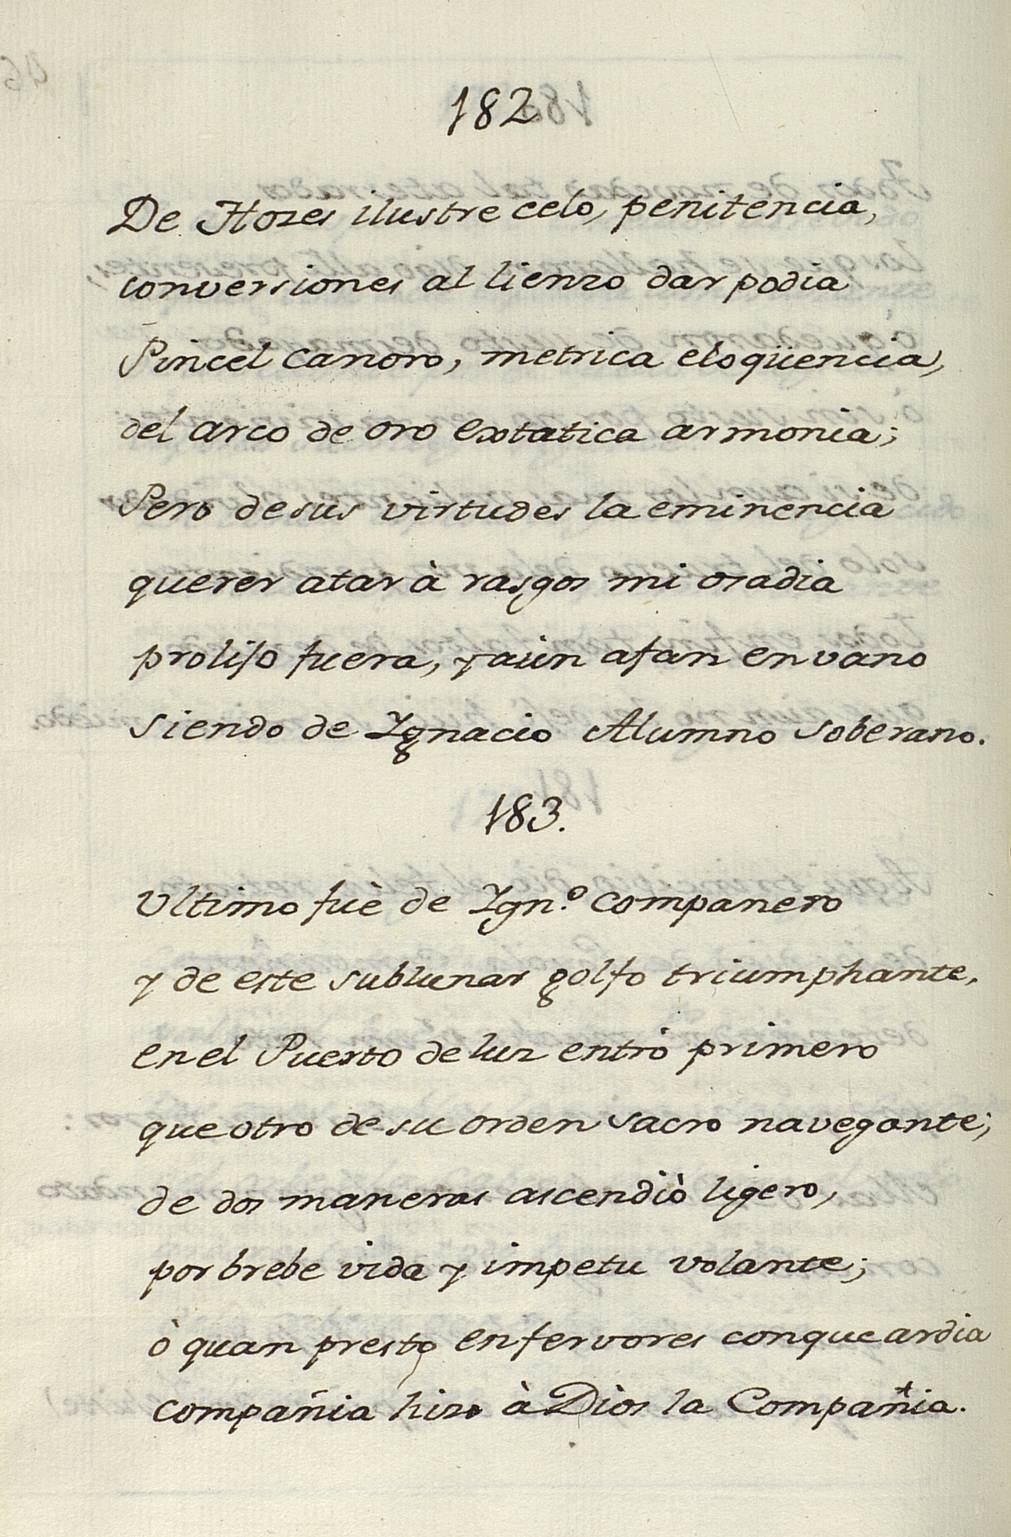 182
De Hozes ilustre celo, penitencia,
conversiones al lienzo dar podia
Pincel canoro, metrica eloqüencia,
del arco de oro extatica armonia;
Pero de sus virtudes la eminencia
querer atar à rasgos mi osadia
prolijo fuera, y aùn afan en vano
siendo de Ignacio Alumno soberano.
183.
Ultimo fuè de Ign.º companero
y de este sublunar golfo triumphante,
en el Puerto de luz entrò primero
que otro de su orden sacro navegante;
de dos maneras ascendiò ligero,
por brebe vida y impetu volante;
ò quan presto en fervores conque ardia
compañia hizo à Dios la Compañia.